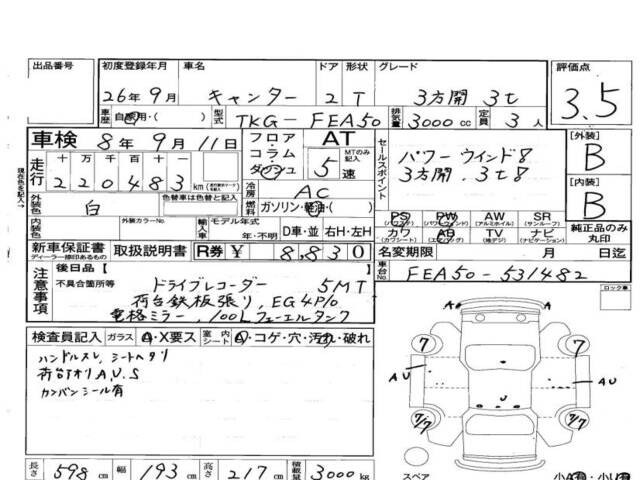 出品番号 初度登録年月 車名 ドア 形状 グレード 評価点
26年9月 キャンター 2 T 3方開 3t 3.5
車歴 自家用・( ) 型式 TKG-FEA50 排気量 3000cc 定員 3人
車検 8年9月11日 フロア・コラム・ダッシュ AT MTのみ記入 5速 セールスポイント パワーウインド8 [外装] B
3方開.3t8
現在色を記入→
走行 十万千百十 220483km 冷房 AC [内装] B
外装色 白 色替車は色替と記入 燃料 ガソリン・軽油・( )
PS (パワステ) PW (パワーウインド) AW (アルミホイル) SR (サンルーフ)
内装色 外装カラーNo. 輸入車 モデル年式 年・不明 D車・並 右H・左H カワ (カワシート) AB (エアバッグ) TV (地デジ) ナビ (ナビゲーション) 純正品のみ丸印
新車保証書 ディーラー捺印あるもの 取扱説明書 R券 ¥ 8,830 名変期限 月 日迄
注意事項 後日品 [ ] 車台No. FEA50-531482
不具合箇所等 ドライブレコーダー 5MT
荷台鉄板張り,EG4P10
電格ミラー,100Lフューエルタンク
ロック車
検査員記入 ガラス A・X要ス 室内シート A・コゲ・穴・汚れ・破れ
ハンドルスレ,シートヘタリ
荷台アオリA,U,S
カンバンシール有
A A
7 7
AU AU
U
7/7 7/7
長さ 598cm 幅 193cm 高さ 217cm 積載量 3000kg スペア 小A有・小U有